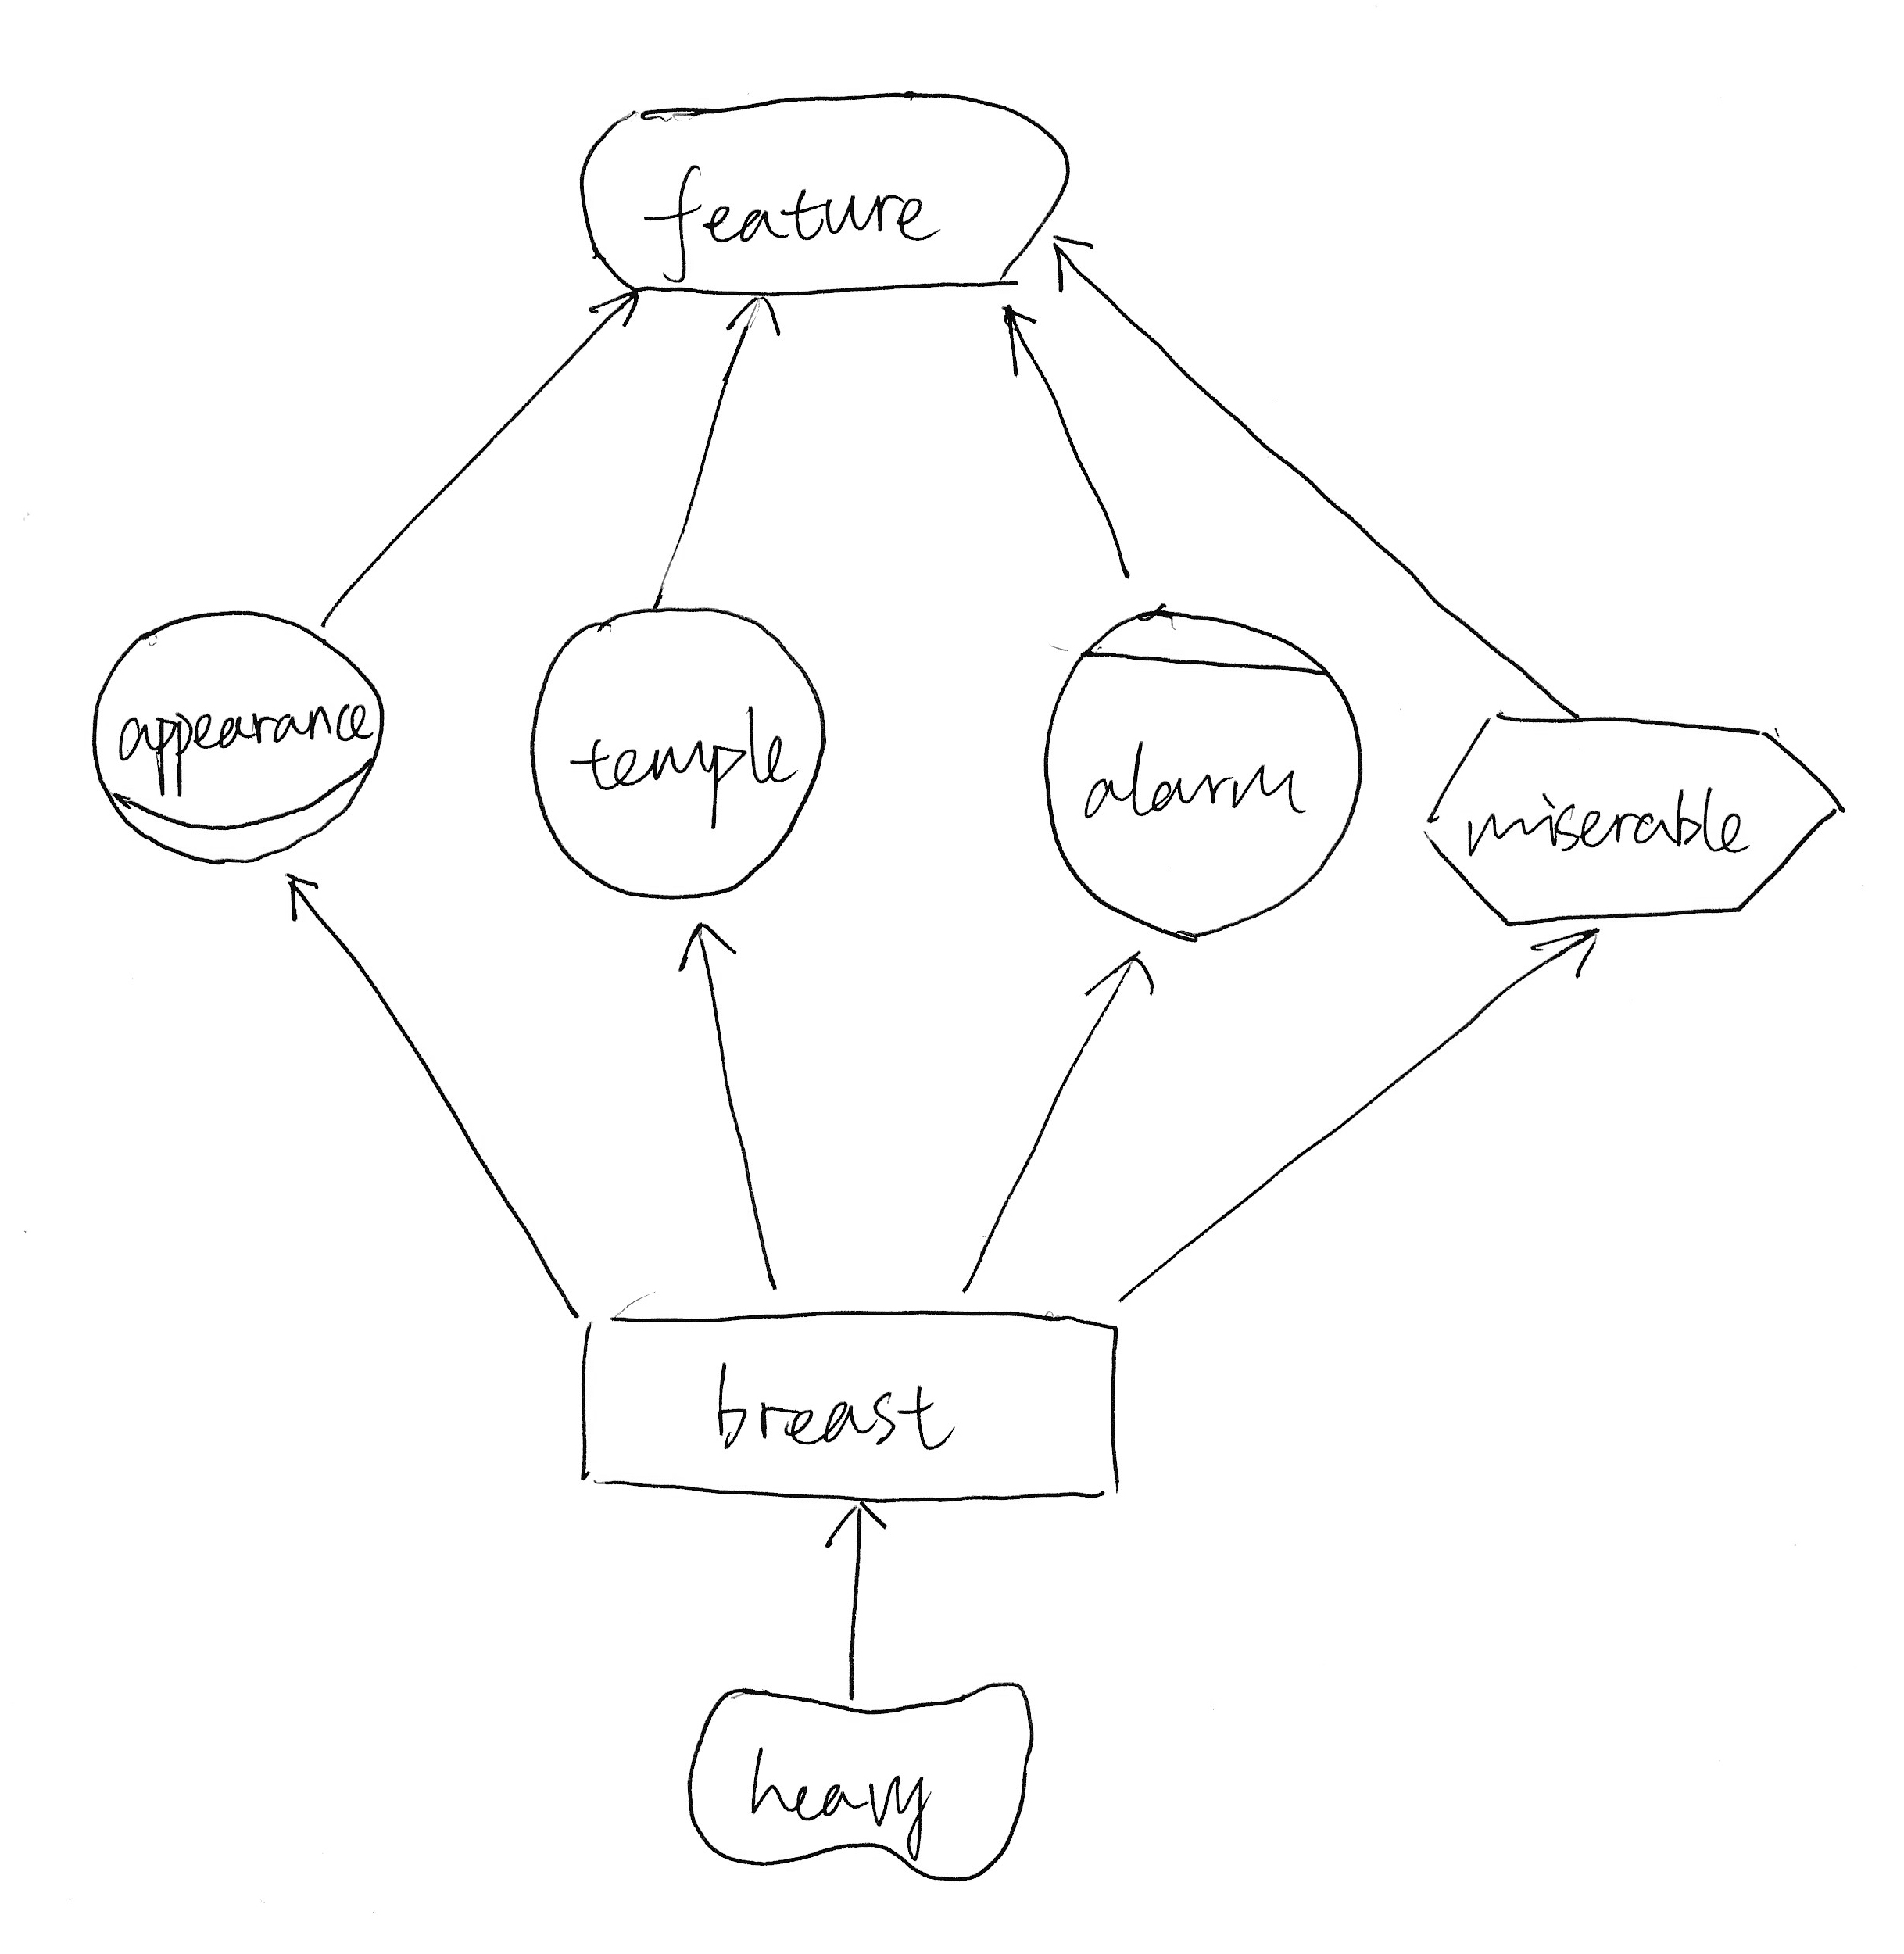 feature
appearance
temple
alarm
miserable
breast
heavy